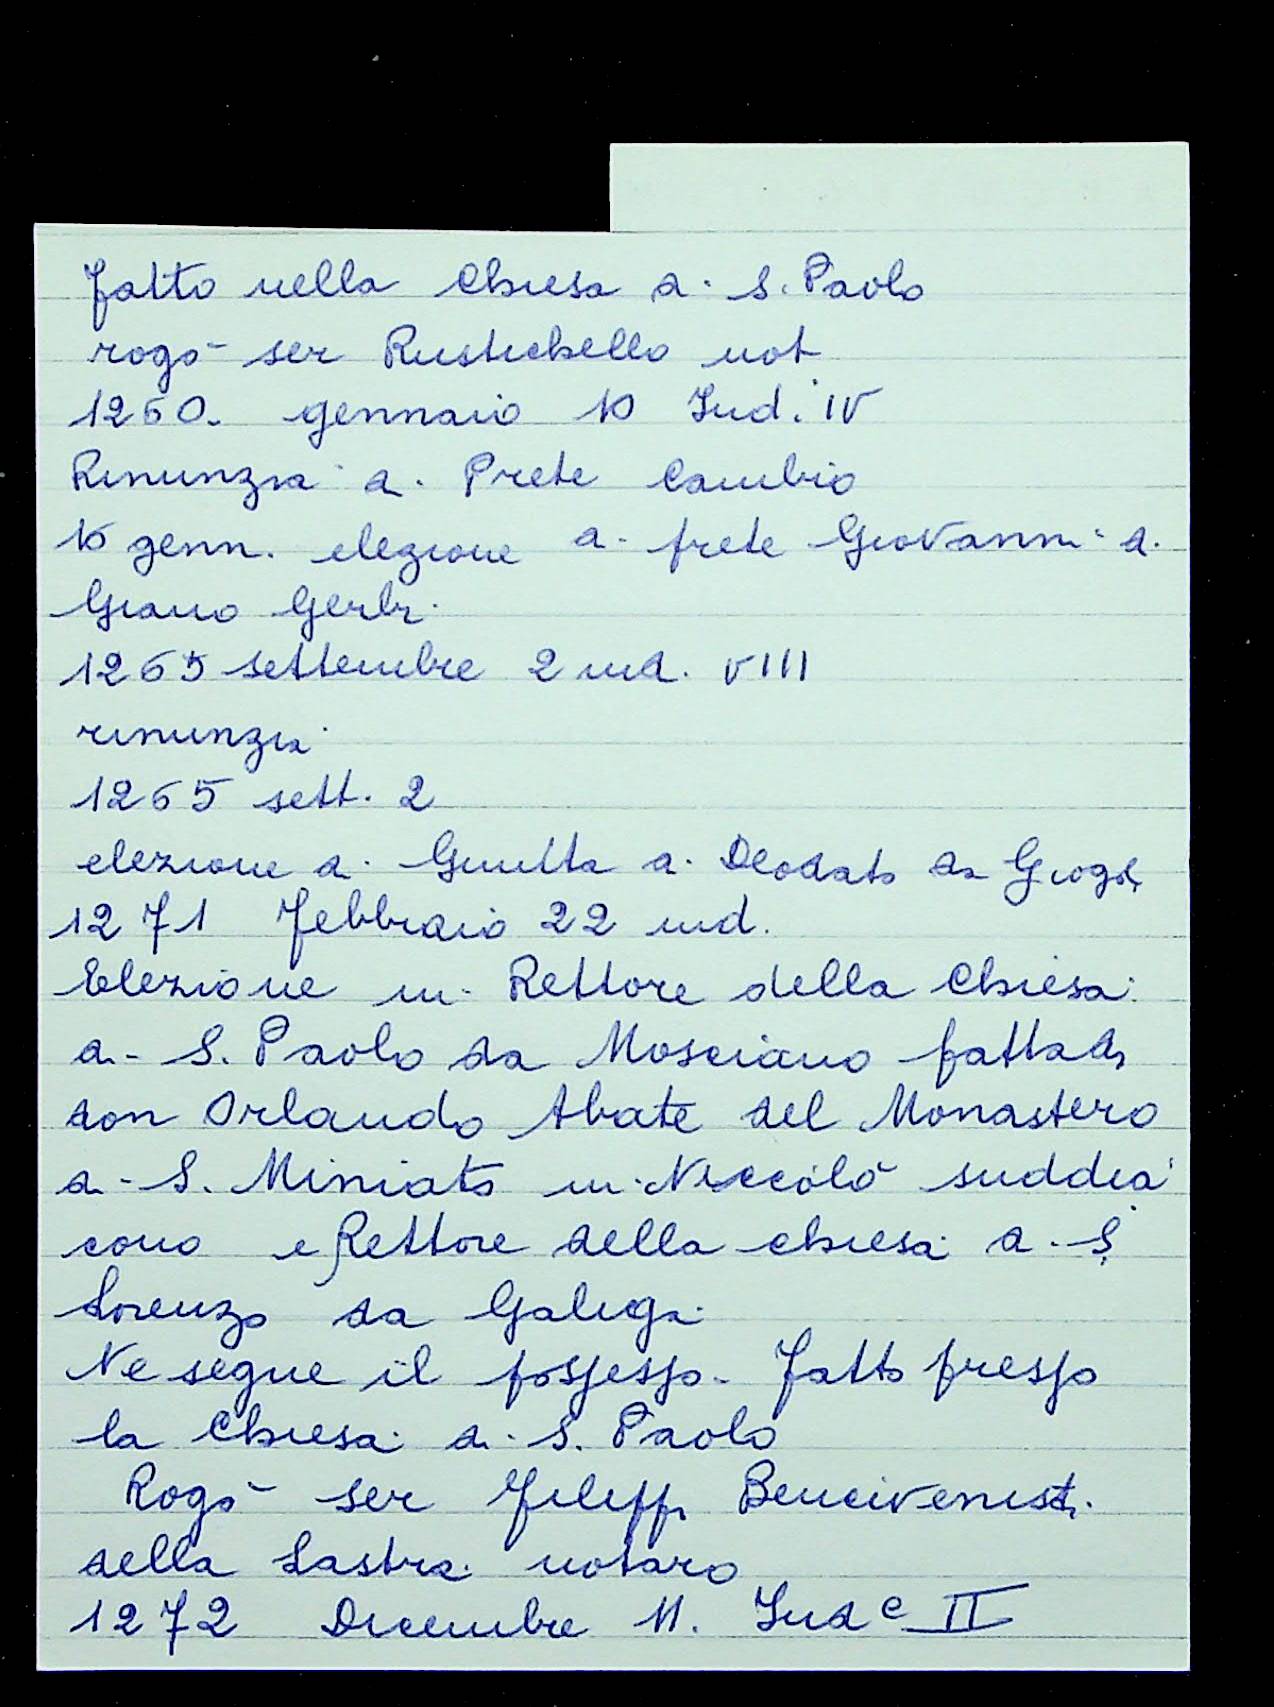 fatto nella Chiesa di S. Paolo
rogò ser Rustichello not
1260. gennaio 10 Ind. IV
Rinunzia di Prete Cambio
10 genn. elezione di prete Giovanni di
Giano
1265 settembre 2 ind. VIII
rinunzia
1265 sett. 2
elezione di Giunta di Deodato da
1271 Febbraio 22 ind.
Elezione in Rettore della Chiesa
di S. Paolo da Mosciano fatta da
don Orlando Abate del Monastero
di S. Miniato in Niccolò suddia
cono e Rettore della chiesa di S.
Lorenzo da Galiga
Ne segue il possesso. Fatto presso
la Chiesa di S. Paolo
Rogò ser Filippo Bencivenisti
della Lastra notaro
1272 Dicembre 11. Ind.e II